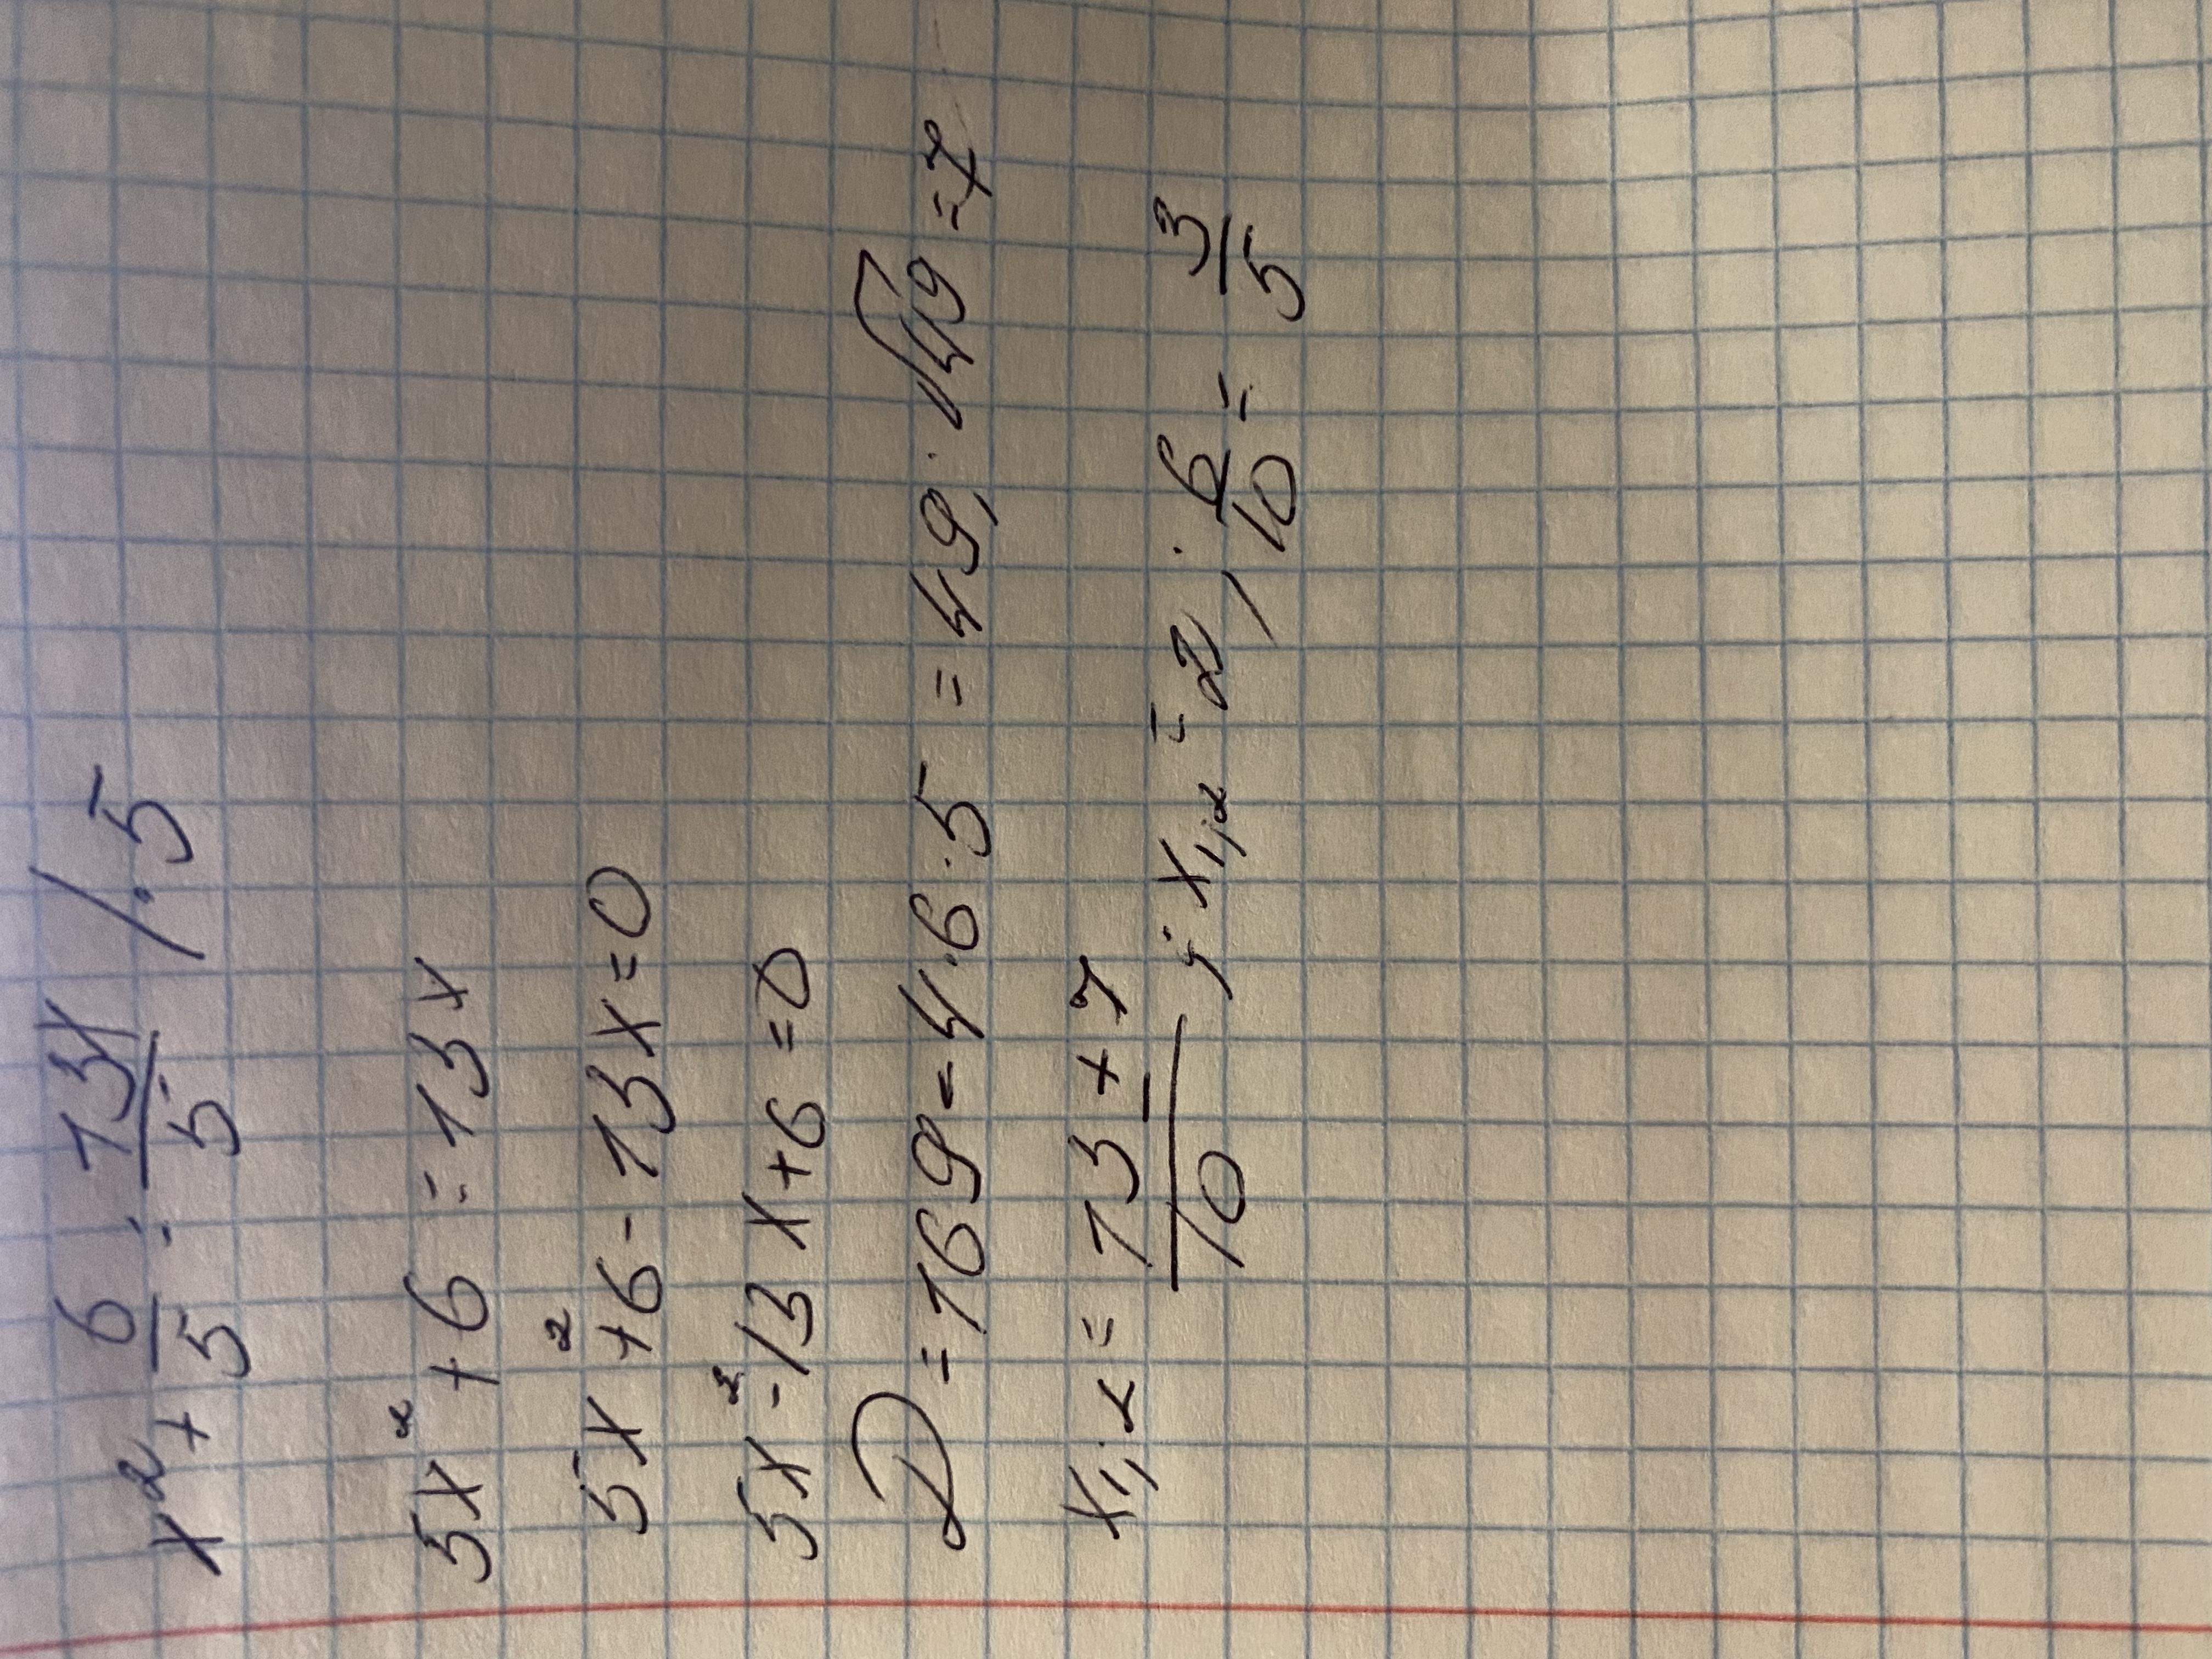 x² + 6/5 = 13x/5 /·5
5x² + 6 = 13x
5x² + 6 - 13x = 0
5x² - 13x + 6 = 0
D = 169 - 4·6·5 = 49; √49 = 7
x₁,₂ = (13 ± 7)/10 ; x₁,₂ = 2; 6/10 = 3/5